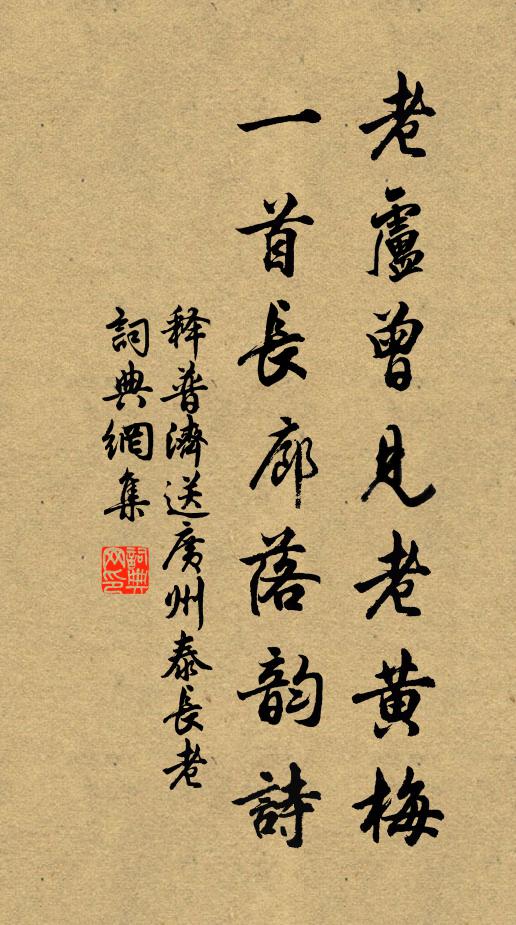 老盧曾見老黄梅
一首長廊落韵詩
释普濟送廣州泰長老
詞典網集
詞典网印